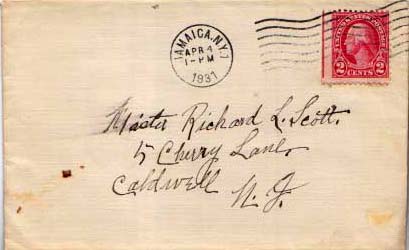 JAMAICA, N.Y. 1
APR 4
1-PM
1931
UNITED STATES POSTAGE
2 CENTS 2
Master Richard L. Scott.
15 Cherry Lane,
Caldwell N. J.